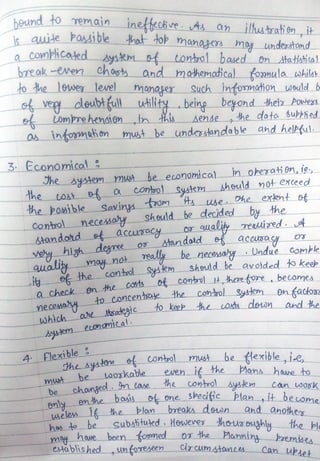 bound to remain ineffective. As an illustration, it
is quite possible that top managers may understand
a complicated system of control based on statistical
break-even charts and mathematical formula whilst
to the lower level manager such information would b
of very doubtfull utility, being beyond their powers
of comprehension. In this sense, the data supplied
as information must be understandable and helpful.
3. Economical :
The system must be economical in operation, i.e.,
the cost of a control system should not exceed
the possible savings from its use. The extent of
control necessary should be decided by the
standard of accuracy or quality required. A
very high degree or standard of accuracy or
quality may not really be necessary. Undue comple
ity of the control system should be avoided to keep
a check on the costs of control it, therefore, becomes
necessary to concentrate the control system on factors
which are strategic to keep the costs down and the
system economical.
4. Flexible :
The system of control must be flexible, i.e,
must be workable even if the plans have to
be changed. In case the control system can work
only on the basis of one specific plan, it become
useless if the plan breaks down and another
has to be substituted. However thouroughly the
may have been formed or the planning premises
established, unforeseen circumstances can upset